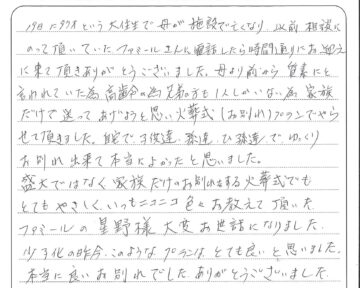 19日に夕方という大往生で母が施設で亡くなり、以前相談に
のって頂いていたファミールさんに電話したら時間通りにお迎え
に来て頂きありがとうございました。母より前から質素にと
言われていた為高齢の為兄弟の方も1人しかいない為家族
だけで送ってあげようと思い火葬式(お別れ)プランでやら
せて頂きました。自宅で子供達、孫達、ひ孫達でゆっくり
お別れ出来て本当によかったと思いました。
盛大ではなく家族だけのお別れをする火葬式でも
とてもやさしく、いつもニコニコ色々お教えて頂いた
ファミールの星野様大変お世話になりました。
少子化の昨今、このようなプランは、とても良いと思いました。
本当に良いお別れでした。ありがとうございました。